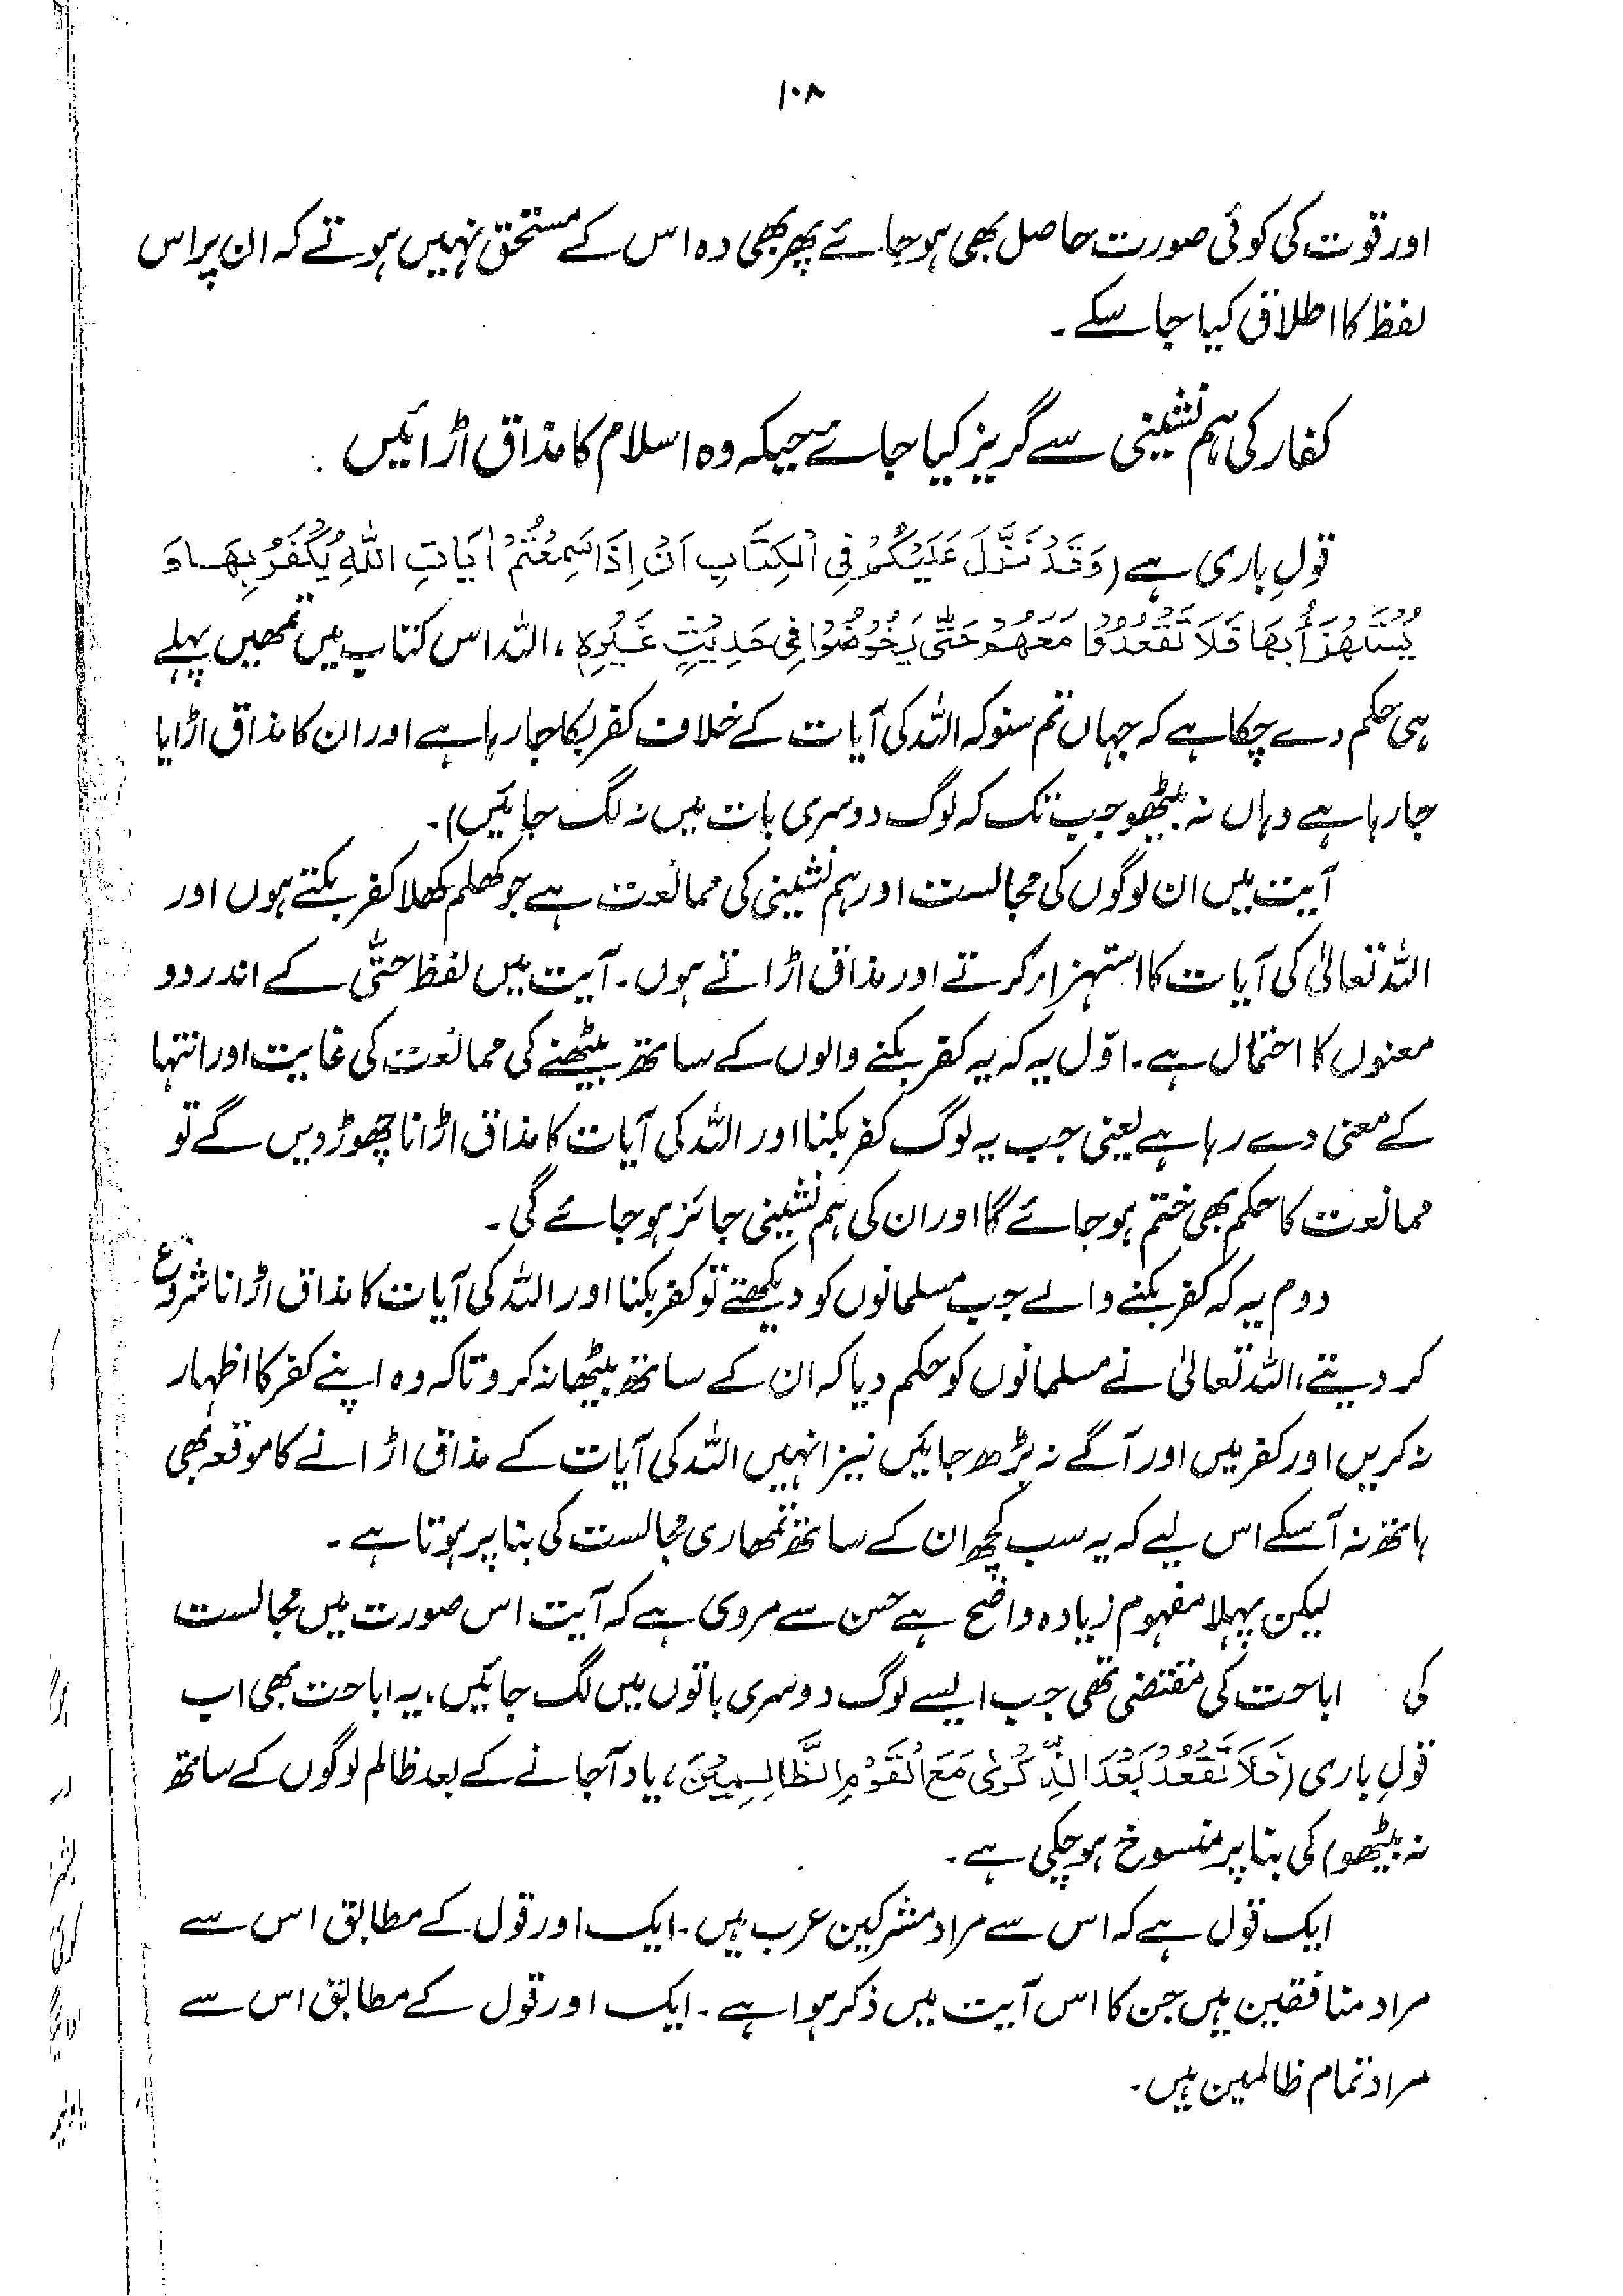 ۱۰۸
اور قوت کی کوئی صورت حاصل بھی ہو جائے پھر بھی وہ اس کے مستحق نہیں ہوتے کہ ان پر اس
لفظ کا اطلاق کیا جا سکے۔
کفار کی ہم نشینی سے گریز کیا جائے جبکہ وہ اسلام کا مذاق اڑائیں
قولِ باری ہے (وَقَدْ نَزَّلَ عَلَيْكُمْ فِي الْكِتَابِ اَنْ اِذَا سَمِعْتُمْ اٰيَاتِ اللّٰهِ يُكْفَرُ بِهَا وَ
يُسْتَهْزَأُ بِهَا فَلَا تَقْعُدُوْا مَعَهُمْ حَتّٰى يَخُوْضُوْا فِيْ حَدِيْثٍ غَيْرِهٖ، اللہ اس کتاب میں تمھیں پہلے
ہی حکم دے چکا ہے کہ جہاں تم سنو کہ اللہ کی آیات کے خلاف کفر بکا جا رہا ہے اور ان کا مذاق اڑایا
جا رہا ہے وہاں نہ بیٹھو جب تک کہ لوگ دوسری بات میں نہ لگ جائیں)۔
آیت میں ان لوگوں کی مجالست اور ہم نشینی کی ممانعت ہے جو کھلم کھلا کفر بکتے ہوں اور
اللہ تعالیٰ کی آیات کا استہزار کرتے اور مذاق اڑاتے ہوں۔ آیت میں لفظ حتّٰی کے اندر دو
معنوں کا احتمال ہے۔ اوّل یہ کہ یہ کفر بکنے والوں کے ساتھ بیٹھنے کی ممانعت کی غایت اور انتہا
کے معنی دے رہا ہے یعنی جب یہ لوگ کفر بکنا اور اللہ کی آیات کا مذاق اڑانا چھوڑ دیں گے تو
ممانعت کا حکم بھی ختم ہو جائے گا اور ان کی ہم نشینی جائز ہو جائے گی۔
دوم یہ کہ کفر بکنے والے جب مسلمانوں کو دیکھتے تو کفر بکنا اور اللہ کی آیات کا مذاق اڑانا شروع
کر دیتے، اللہ تعالیٰ نے مسلمانوں کو حکم دیا کہ ان کے ساتھ بیٹھا نہ کرو تاکہ وہ اپنے کفر کا اظہار
نہ کریں اور کفر میں اور آگے نہ بڑھ جائیں نیز انہیں اللہ کی آیات کے مذاق اڑانے کا موقعہ بھی
ہاتھ نہ آ سکے اس لیے کہ یہ سب کچھ ان کے ساتھ تمھاری مجالست کی بنا پر ہوتا ہے۔
لیکن پہلا مفہوم زیادہ واضح ہے حسن سے مروی ہے کہ آیت اس صورت میں مجالست
کی اباحت کی مقتضی تھی جب ایسے لوگ دوسری باتوں میں لگ جائیں، یہ اباحت بھی اب
قولِ باری (فَلَا تَقْعُدْ بَعْدَ الذِّكْرٰى مَعَ الْقَوْمِ الظَّالِمِيْنَ، یاد آجانے کے بعد ظالم لوگوں کے ساتھ
نہ بیٹھو) کی بنا پر منسوخ ہو چکی ہے۔
ایک قول ہے کہ اس سے مراد مشرکین عرب ہیں۔ ایک اور قول کے مطابق اس سے
مراد منافقین ہیں جن کا اس آیت میں ذکر ہوا ہے۔ ایک اور قول کے مطابق اس سے
مراد تمام ظالمین ہیں۔